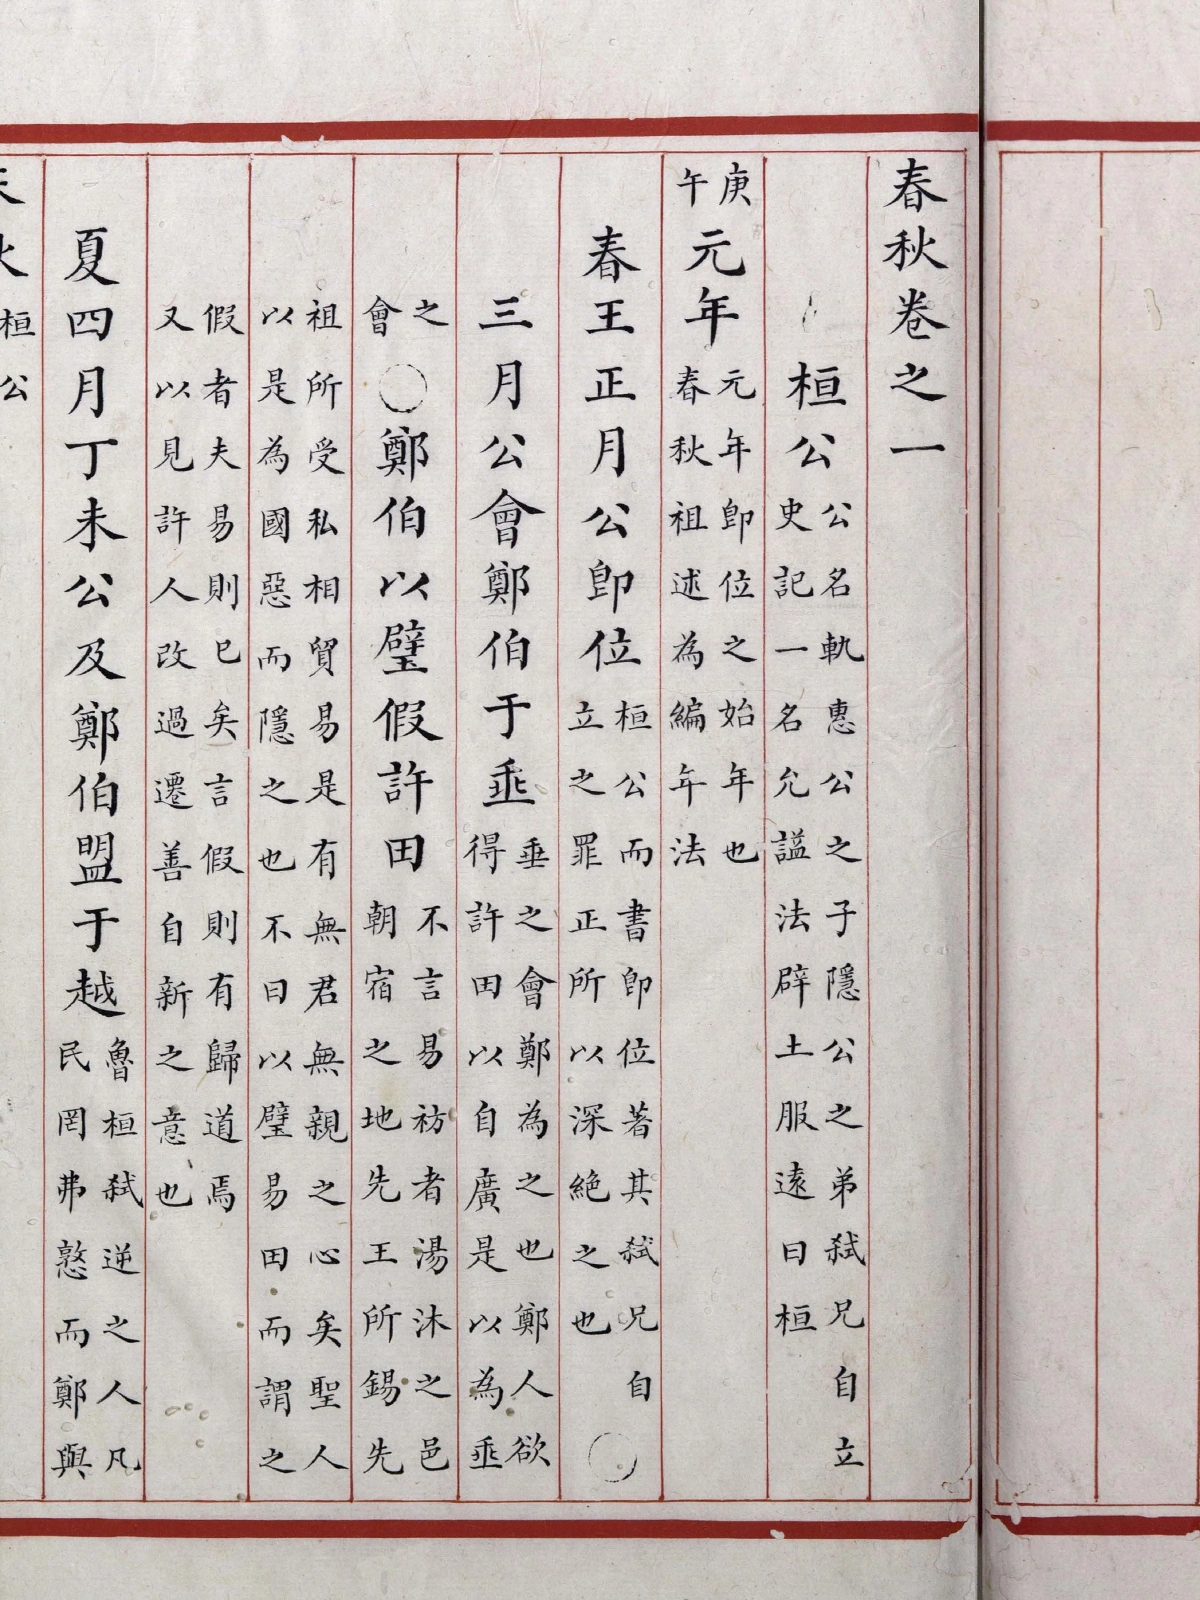 春秋卷之一
桓公公名軌惠公之子隱公之弟弑兄自立
史記一名允謚法辟土服遠曰桓
庚午元年元年即位之始年也
春秋祖述為編年法
春王正月公即位桓公而書即位著其弑兄自
立之罪正所以深絶之也○
三月公會鄭伯于垂垂之會鄭為之也鄭人欲
得許田以自廣是以為垂
之
會○鄭伯以璧假許田不言易祊者湯沐之邑
朝宿之地先王所錫先
祖所受私相貿易是有無君無親之心矣聖人
以是為國惡而隱之也不曰以璧易田而謂之
假者夫易則已矣言假則有歸道焉
又以見許人改過遷善自新之意也
夏四月丁未公及鄭伯盟于越魯桓弑逆之人凡
民罔弗憝而鄭與
桓公